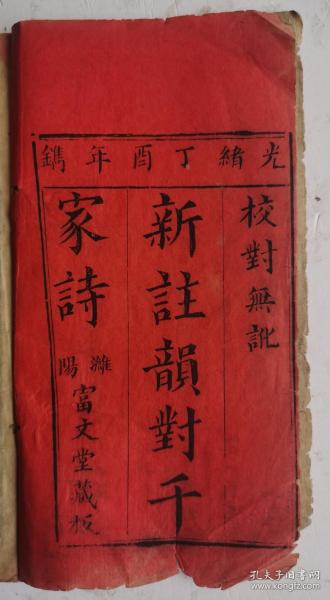 光緒丁酉年鐫
校對無訛
新註韻對千
家詩
濰陽
富文堂藏板
孔夫子旧书网